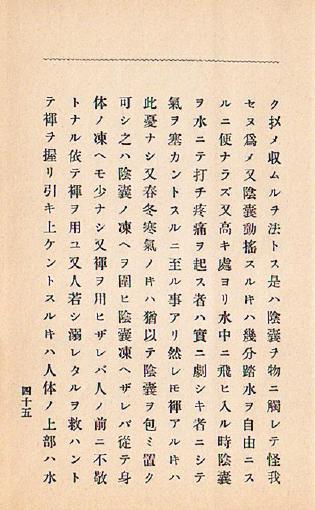 ク扠メ收ムルヲ法トス是ハ陰嚢ヲ物ニ觸レテ怪我
セヌ爲メ又陰嚢動搖スルキハ幾分踏水ヲ自由ニス
ルニ便ナラズ又高キ處ヨリ水中ニ飛ヒ入ル時陰嚢
ヲ水ニテ打チ疼痛ヲ起ス者ハ實ニ劇シキ者ニシテ
氣ヲ塞カントスルニ至ル事アリ然レモ褌アルキハ
此憂ナシ又春冬寒氣ノキハ猶以テ陰嚢ヲ包ミ置ク
可シ之ハ陰嚢ノ凍ヘヲ圍ヒ陰嚢凍ヘザレバ從テ身
体ノ凍ヘモ少ナシ又褌ヲ用ヒザレバ人ノ前ニ不敬
トナル依テ褌ヲ用ユ又人若シ溺レタルヲ救ハント
テ褌ヲ握リ引キ上ケントスルキハ人体ノ上部ハ水
四十五